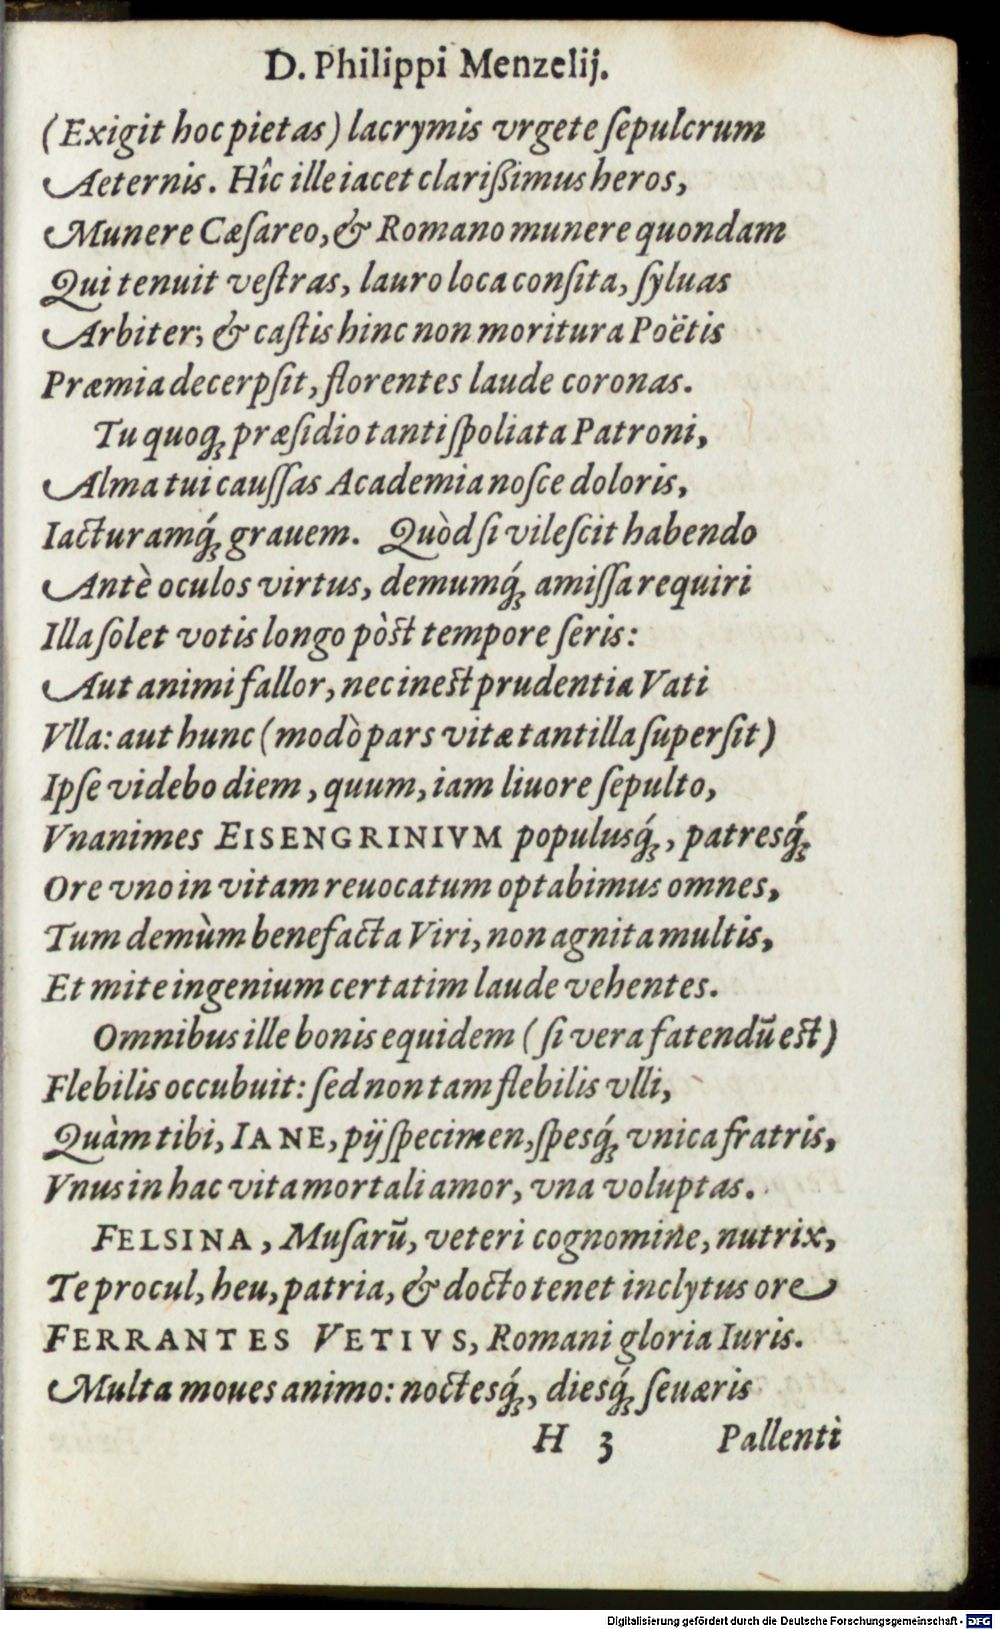 D. Philippi Menzelij.
(Exigit hoc pietas) lacrymis vrgete ſepulcrum
Aeternis. Hîc ille iacet clarißimus heros,
Munere Cæſareo, & Romano munere quondam
Qui tenuit veſtras, lauro loca conſita, ſyluas
Arbiter; & caſtis hinc non moritura Poëtis
Præmia decerpſit, florentes laude coronas.
Tu quoq; præſidio tanti ſpoliata Patroni,
Alma tui cauſſas Academia noſce doloris,
Iacturamq́; grauem. Quòd ſi vileſcit habendo
Antè oculos virtus, demumq́; amiſſa requiri
Illa ſolet votis longo pòst tempore ſeris:
Aut animi fallor, nec inest prudentia Vati
Vlla: aut hunc (modò pars vitæ tantilla ſuperſit)
Ipſe videbo diem, quum, iam liuore ſepulto,
Vnanimes EISENGRINIVM populusq́;, patresq́;
Ore vno in vitam reuocatum optabimus omnes,
Tum demùm benefacta Viri, non agnita multis,
Et mite ingenium certatim laude vehentes.
Omnibus ille bonis equidem (ſi vera fatendū est)
Flebilis occubuit: ſed non tam flebilis vlli,
Quàm tibi, IANE, pij ſpecimen, ſpesq́; vnica fratris,
Vnus in hac vita mortali amor, vna voluptas.
FELSINA, Muſarū, veteri cognomine, nutrix,
Te procul, heu, patria, & docto tenet inclytus ore
FERRANTES VETIVS, Romani gloria Iuris.
Multa moues animo: noctesq́;, diesq́; ſeuæris
H 3 Pallenti
Digitalisierung gefördert durch die Deutsche Forschungsgemeinschaft - DFG